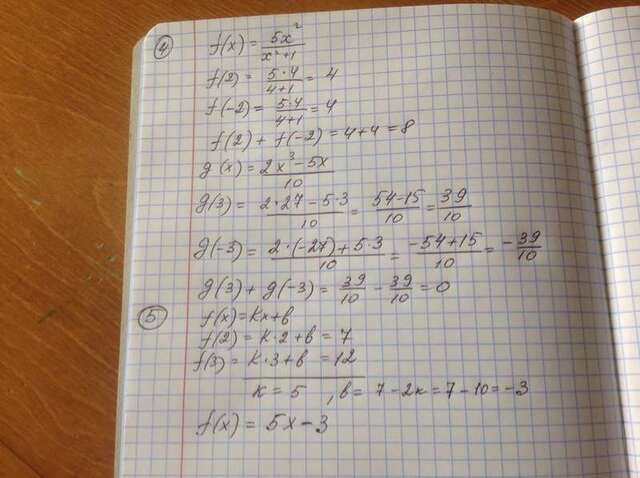 ④ f(x) = 5x²/x²+1
f(2) = 5·4/4+1 = 4
f(-2) = 5·4/4+1 = 4
f(2) + f(-2) = 4+4 = 8
g(x) = 2x³-5x/10
g(3) = 2·27-5·3/10 = 54-15/10 = 39/10
g(-3) = 2·(-27)+5·3/10 = -54+15/10 = -39/10
g(3) + g(-3) = 39/10 - 39/10 = 0
⑤ f(x) = kx+b
f(2) = k·2+b = 7
f(3) = k·3+b = 12
k = 5 , b = 7-2k = 7-10 = -3
f(x) = 5x-3